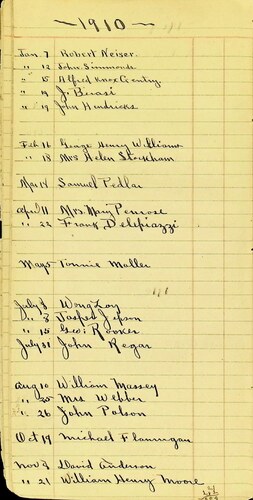 1910
Jan 7 Robert Neiser.
" 12 John Simmonds
" 15 Alfred Knox Gentry
" 19 J. Buasi
" 19 John Hendricks
Feb 16 George Henry Williams
" 18 Mrs Helen Stockham
Mar 14 Samuel Pedlar
April 11 Mrs. Mary Penrose
" 22 Frank Delepiazzi
May 5 Tonnie Maller
July 8 Wong Loy
" 8 Jasper Jepson
" 15 Geo. Rooker
July 31 John Regar
Aug 10 William Massey
" 25 Mrs Webber
" 26 John Polson
Oct 19 Michael Flannigan
Nov 3 David Anderson
" 21 William Henry Moore